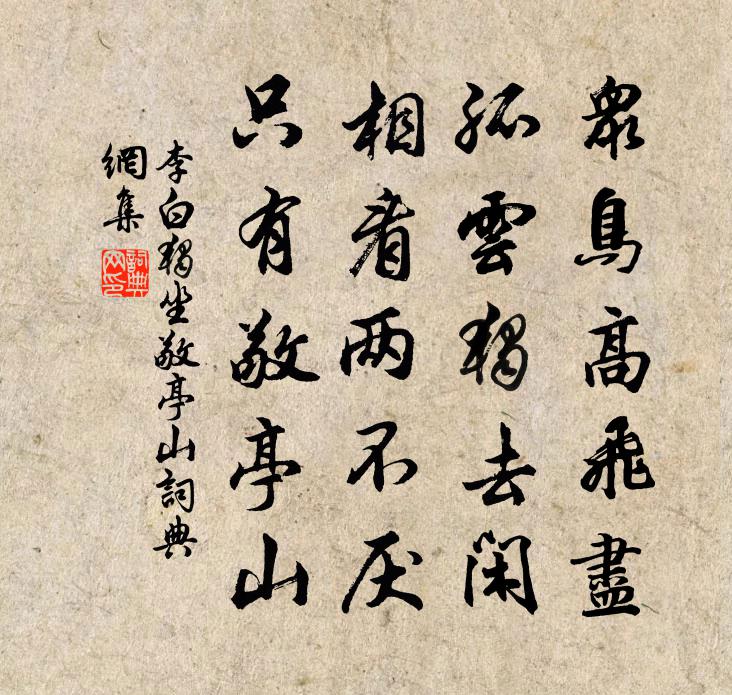 眾鳥高飛盡
孤雲獨去閑
相看兩不厌
只有敬亭山
李白獨坐敬亭山詞典
網集
詞典
网印